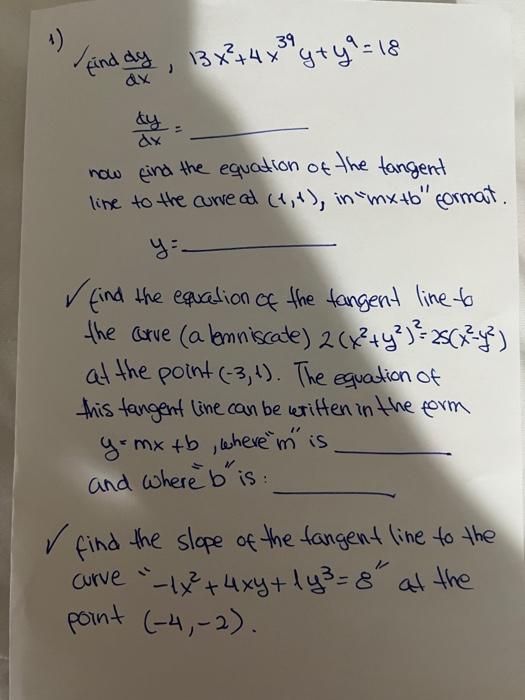 1)
✓ find dy/dx, 13x²+4x³⁹y+y⁹=18
dy/dx = ________
now find the equation of the tangent
line to the curve at (1,1), in "mx+b" format.
y= ________
✓ find the equation of the tangent line to
the curve (a lemniscate) 2(x²+y²)²=25(x²-y²)
at the point (-3,1). The equation of
this tangent line can be written in the form
y=mx+b, where "m" is ________
and where "b" is: ________
✓ find the slope of the tangent line to the
curve "-1x²+4xy+1y³=8" at the
point (-4,-2).